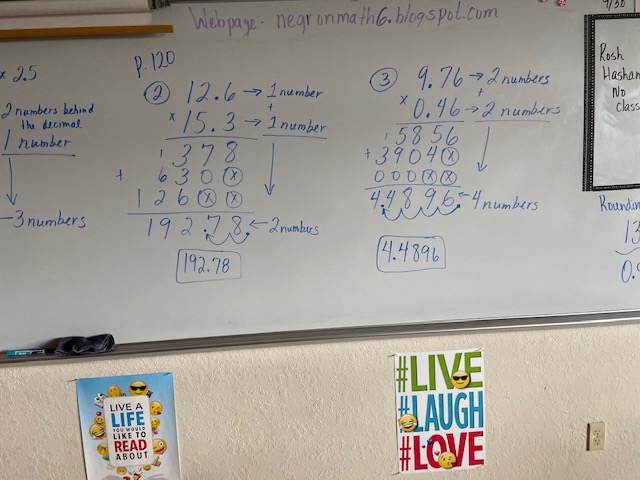 Webpage - negronmath6.blogspot.com
9/30
p. 120
x 2.5
2 numbers behind
the decimal
1 number
3 numbers
② 12.6 → 1 number
+
x 15.3 → 1 number
1
378
+ 630ⓧ
126ⓧⓧ
192.78. ← 2 numbers
192.78
③ 9.76 → 2 numbers
+
x 0.46 → 2 numbers
1
5856
+ 3904ⓧ
000ⓧⓧ
4.4896. ← 4 numbers
4.4896
Rosh
Hashan
No
Class
Roundin
13
0.9
LIVE A
LIFE
YOU WOULD
LIKE TO
READ
ABOUT
#LIVE
#LAUGH
#LOVE